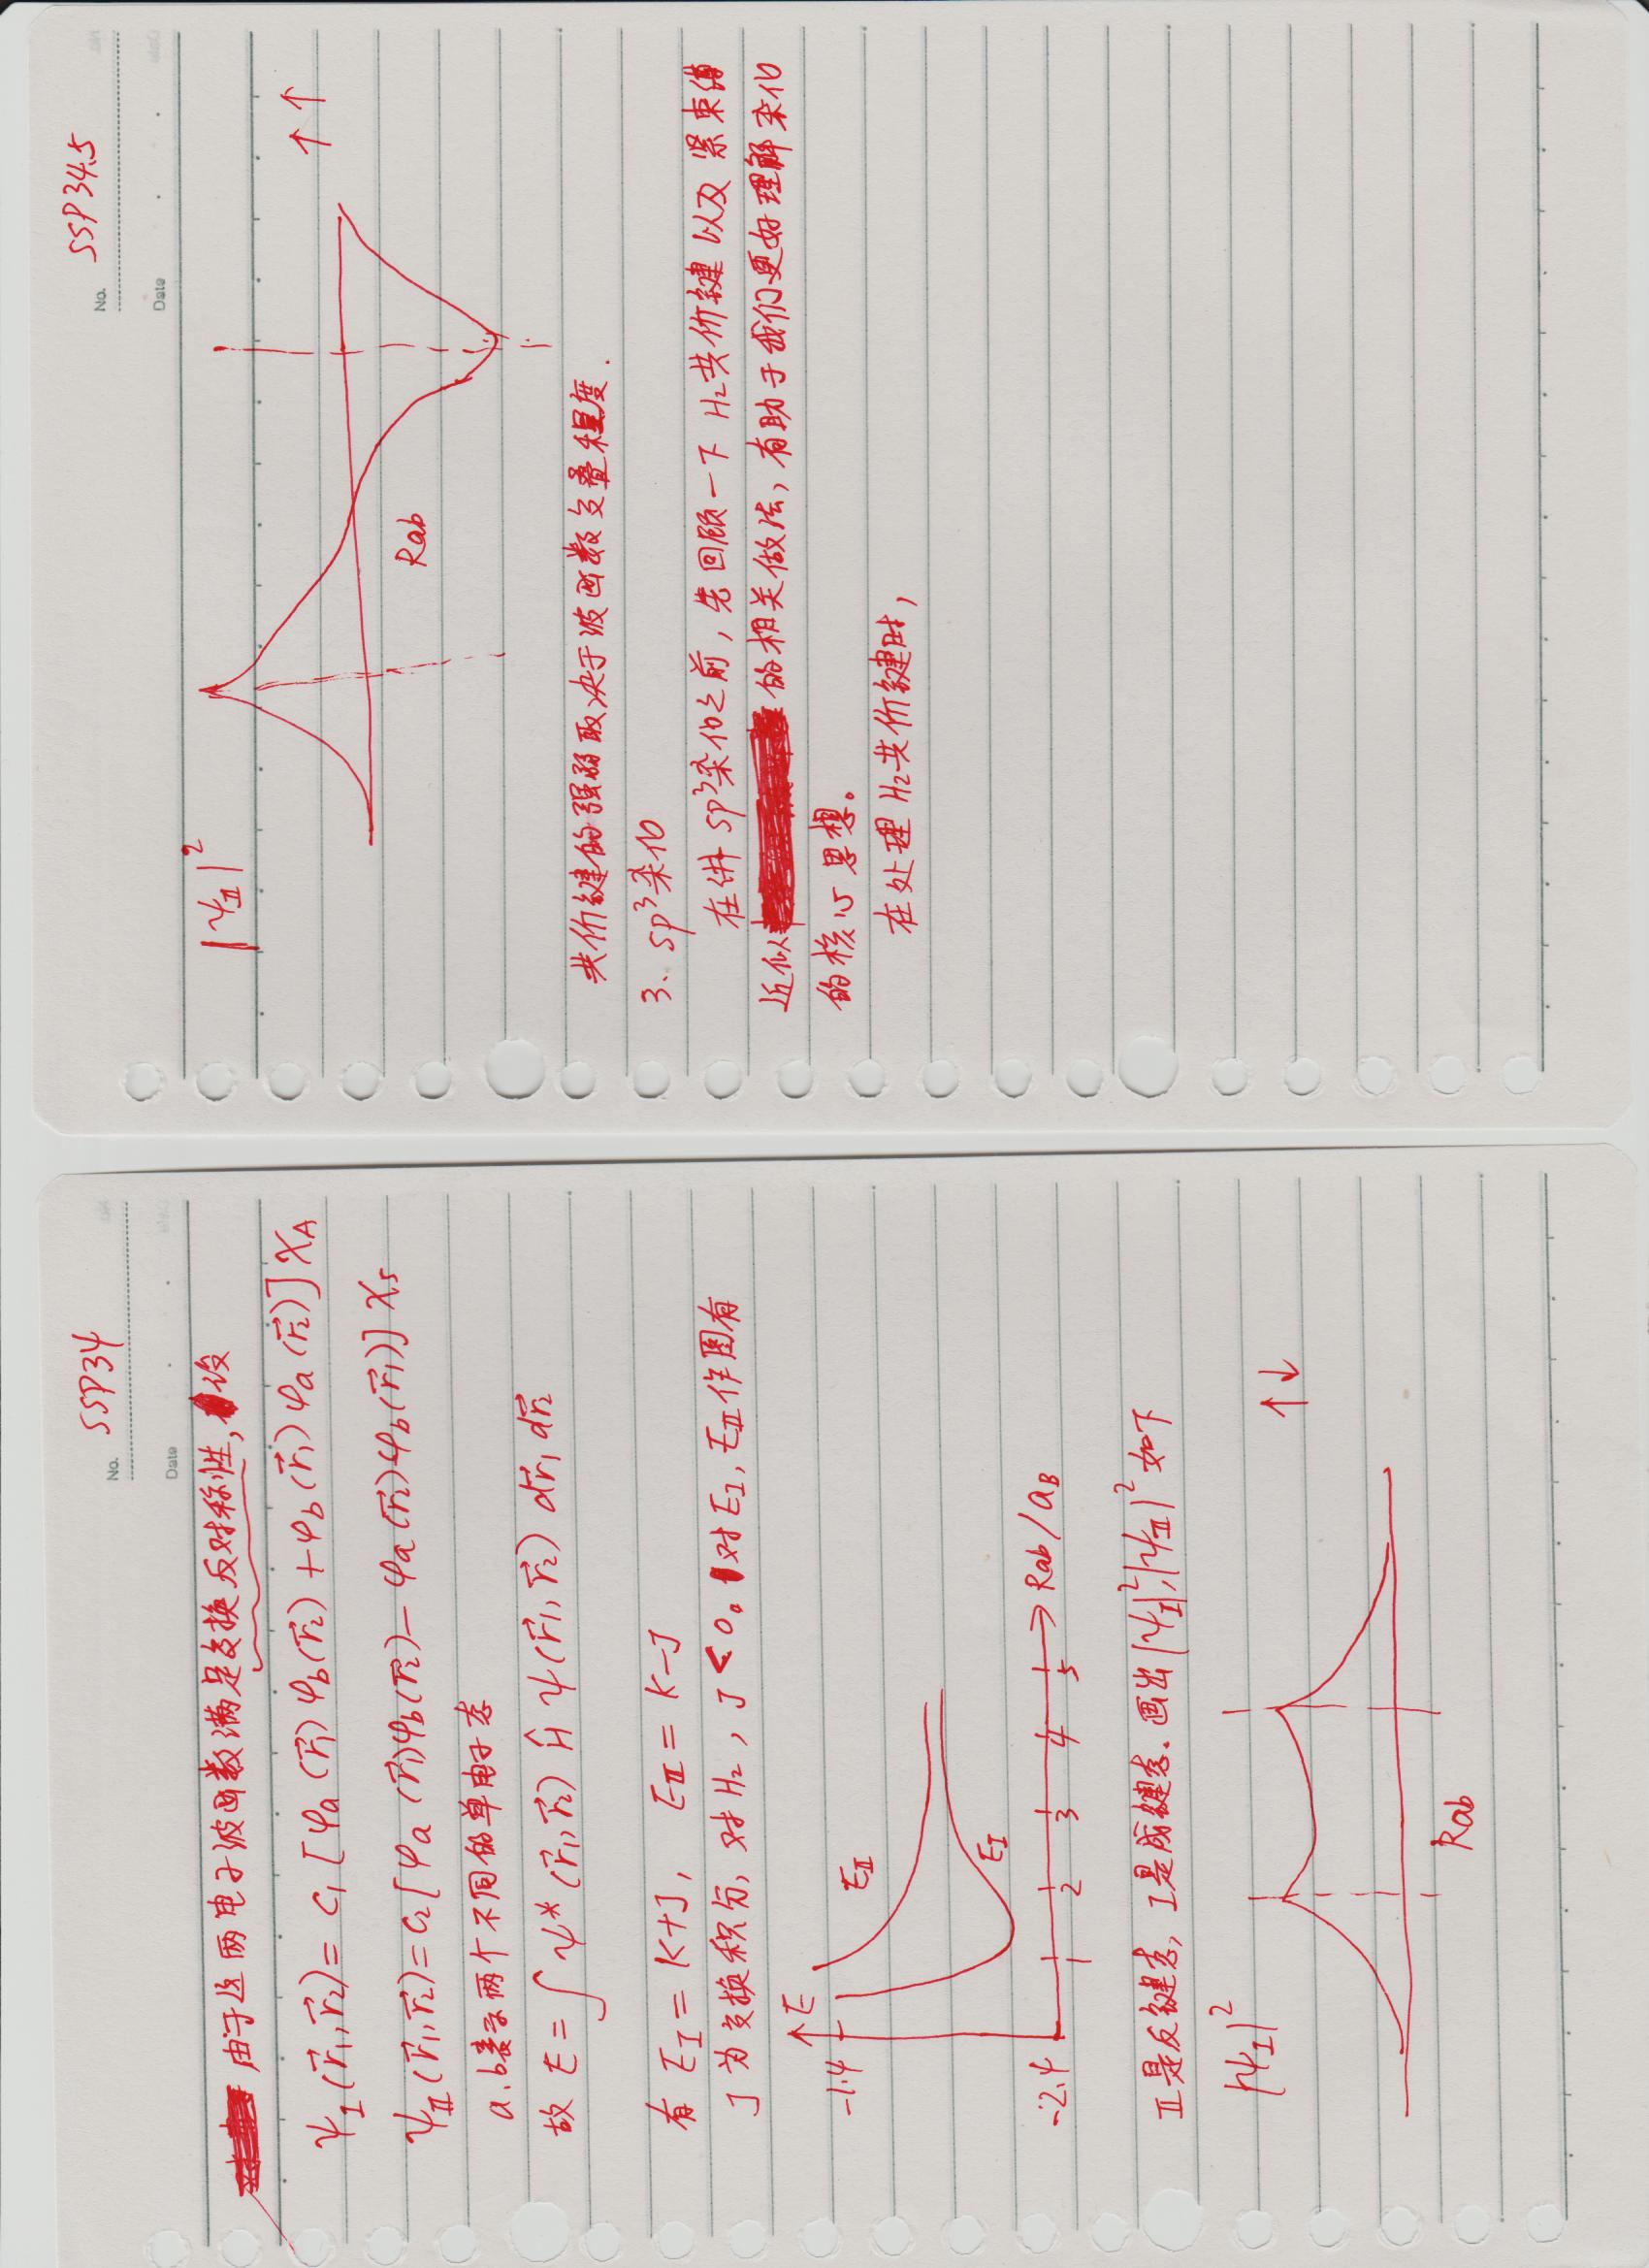 No. SSP34
Date
由于这两电子波函数满足交换反对称性, 设
ψ_I(r⃗₁,r⃗₂)= C₁[φa(r⃗₁)φb(r⃗₂)+φb(r⃗₁)φa(r⃗₂)]χ_A
ψ_II(r⃗₁,r⃗₂)=C₂[φa(r⃗₁)φb(r⃗₂)-φa(r⃗₂)φb(r⃗₁)]χ_S
a.b表示两个不同的单电子态
故 E=∫ψ*(r⃗₁,r⃗₂) Ĥ ψ(r⃗₁,r⃗₂) dr⃗₁dr⃗₂
有 E_I=K+J, E_II=K-J
J为交换积分, 对H₂, J<0。对E_I, E_II作图有
E
-1.4
E_II
E_I
-2.4
1 2 3 4 5
Rab/a_B
II是反键态, I是成键态. 画出|ψ_I|²,|ψ_II|²如下
|ψ_I|²
↑↓
Rab
No. SSP34.5
Date
|ψ_II|²
↑↑
Rab
共价键的强弱取决于波函数交叠程度.
3. sp³杂化
在讲sp³杂化之前, 先回顾一下H₂共价键以及紧束缚
近似的相关做法, 有助于我们更好理解杂化
的核心思想。
在处理H₂共价键时,